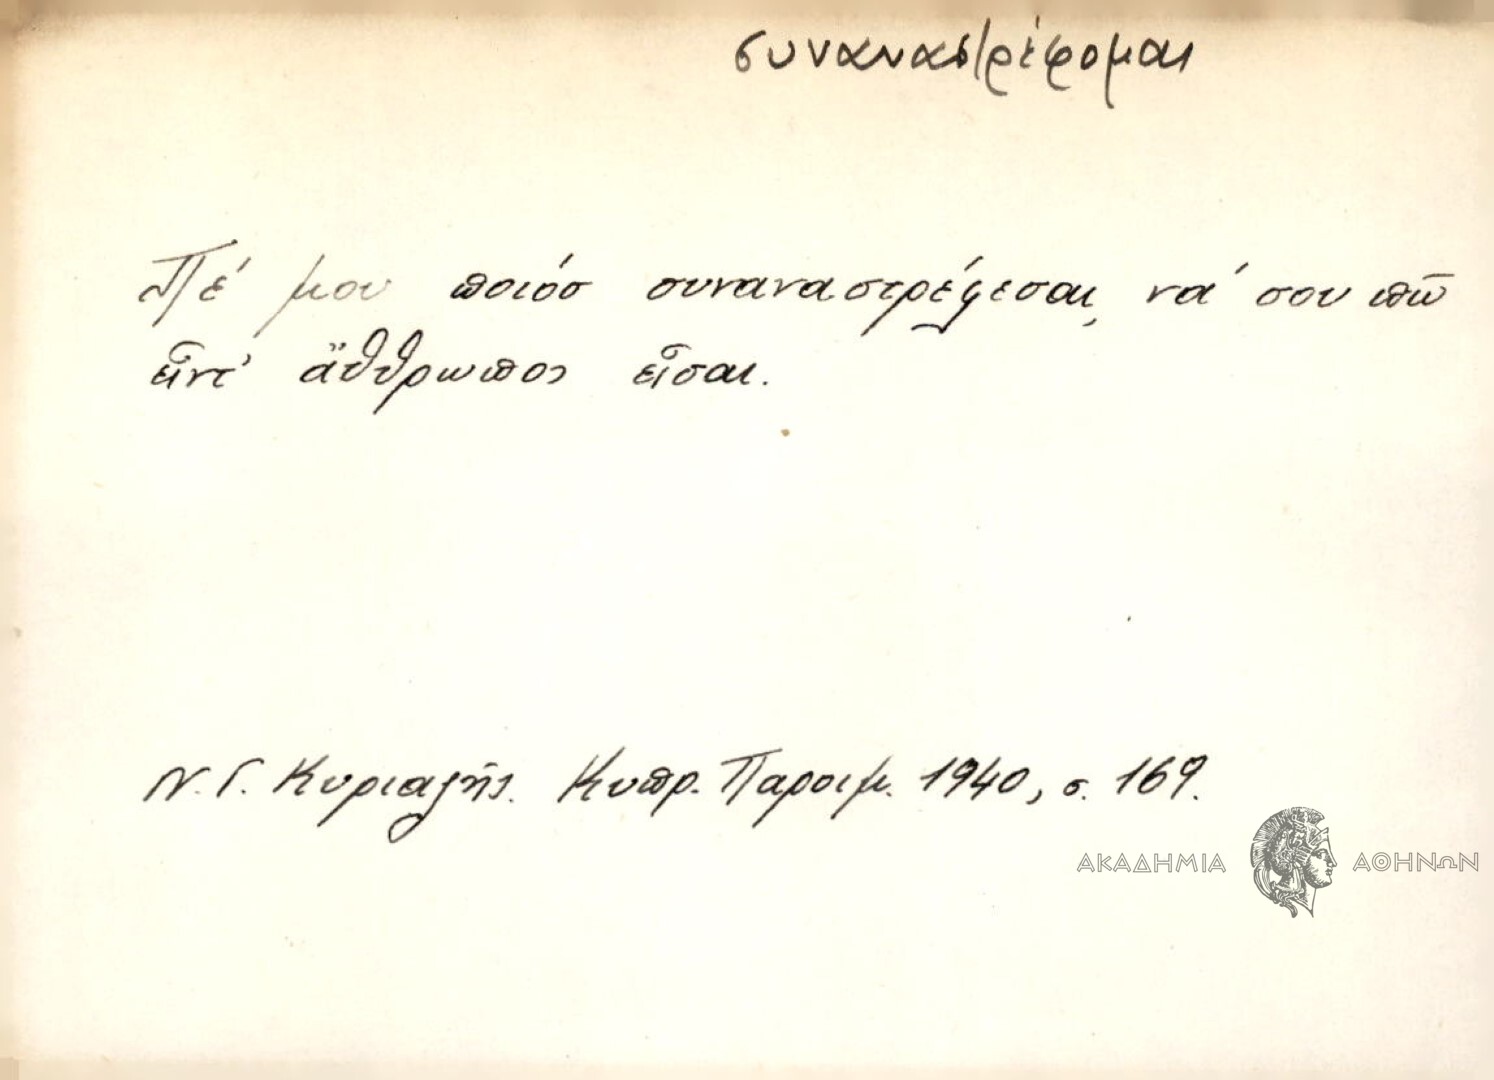 συναναστρέφομαι
Πέ μου ποιόσ συναναστρέφεσαι, νά σου πῶ
εἶντ' ἄθθρωπος εἶσαι.
Ν. Γ. Κυριαζῆς. Κυπρ. Παροιμ. 1940, σ. 169.
ΑΚΑΔΗΜΙΑ ΑΘΗΝΩΝ